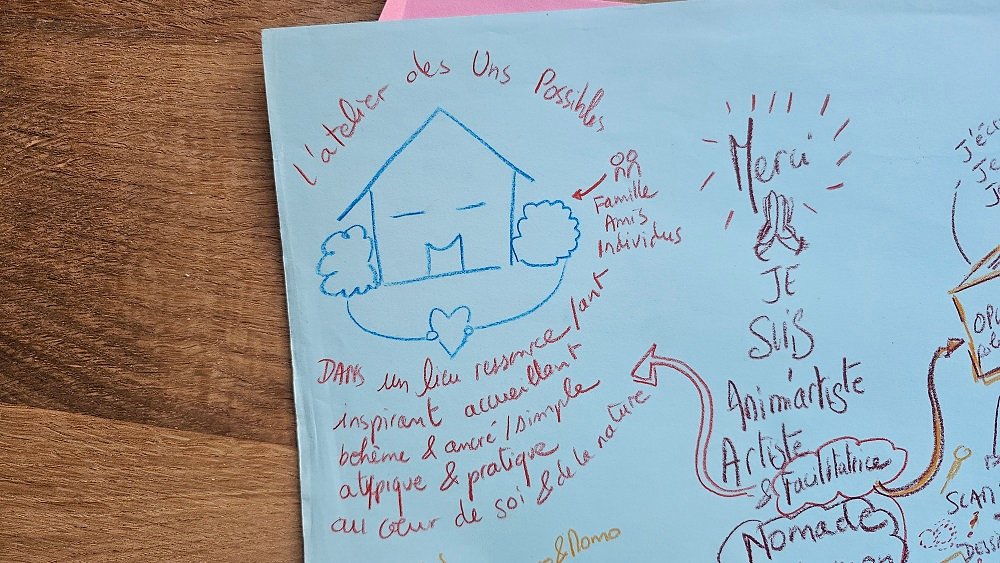 L'atelier des Uns Possibles
Famille
Amis
Individus
DANS un lieu ressource/ant
inspirant accueillant
bohème & ancré/simple
atypique & pratique
au cœur de soi & de la nature
Merci
JE
SUIS
Anim'artiste
Artiste
& Facilitatrice
Nomade
J'écr
Je
J
SCAN